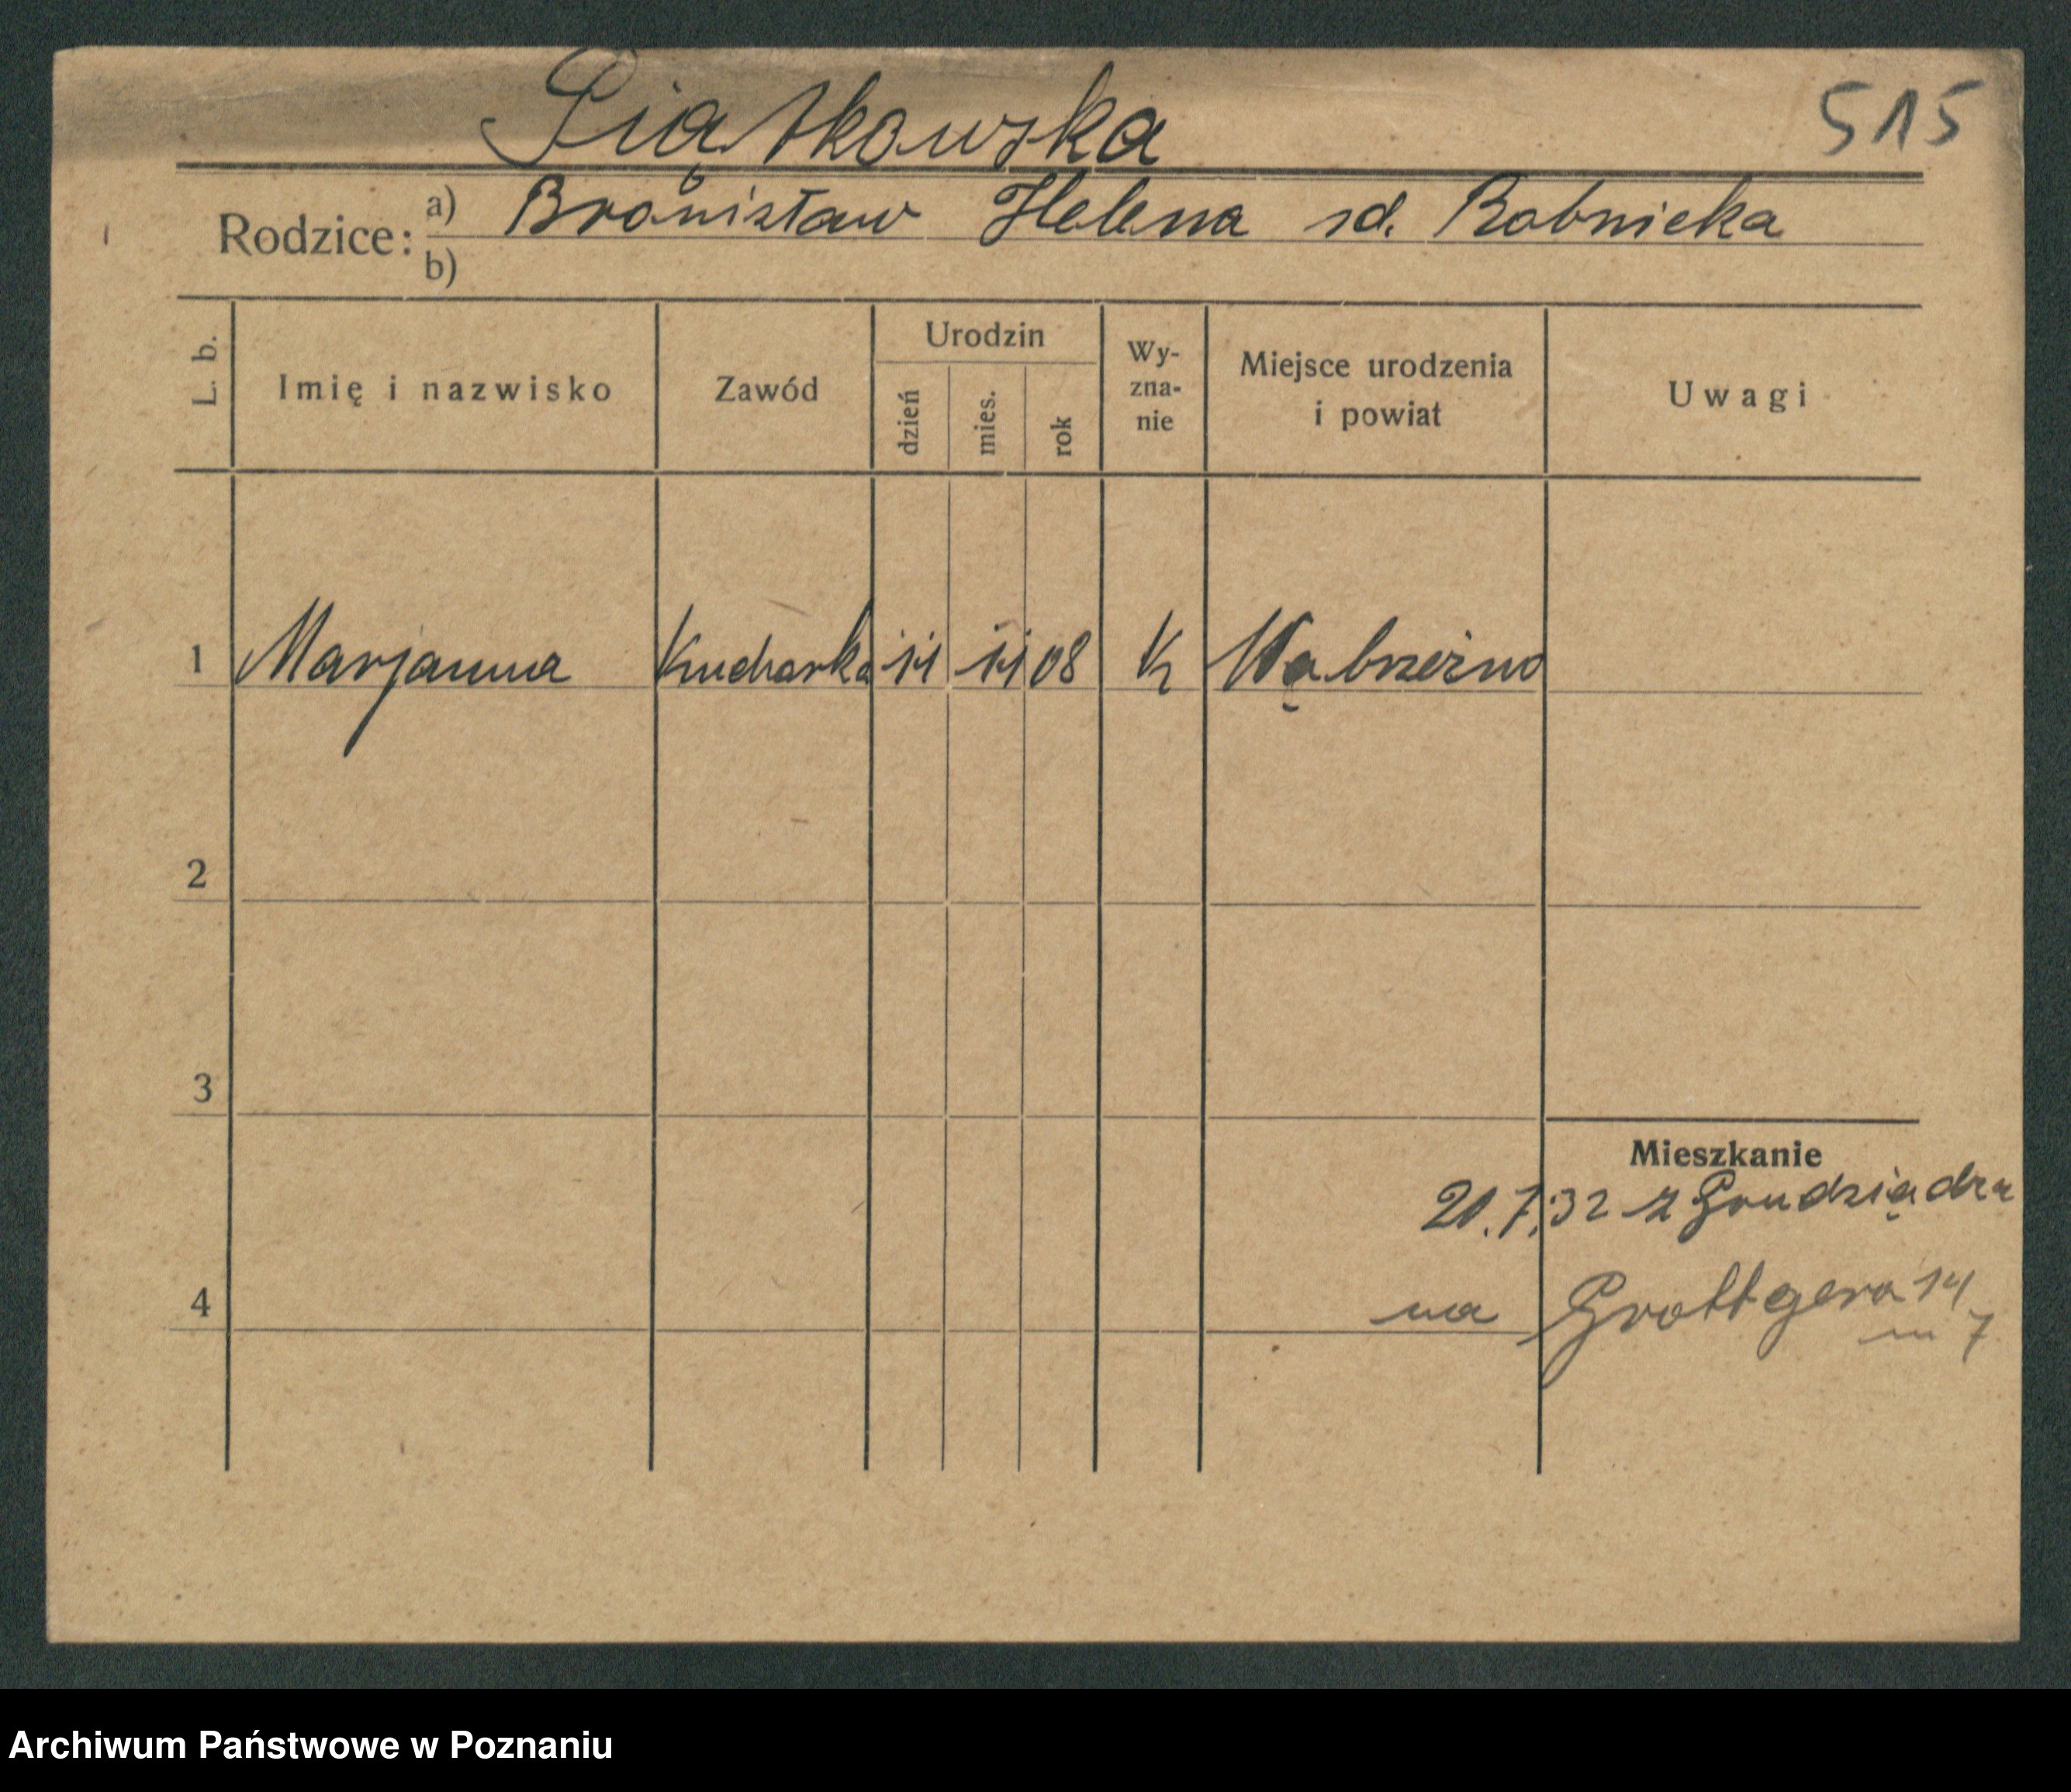 Piątkowska 515
Rodzice: a) Bronisław Helena sd. Robnicka
b)
L. b. Imię i nazwisko Zawód Urodzin dzień mies. rok Wy-zna-nie Miejsce urodzenia i powiat Uwagi
1 Marjanna Kucharka 11 11 08 K Wąbrzeźno
2
3
Mieszkanie
21.7.32 z Grudziądza
4 na Grottgera 14
m 7
Archiwum Państwowe w Poznaniu